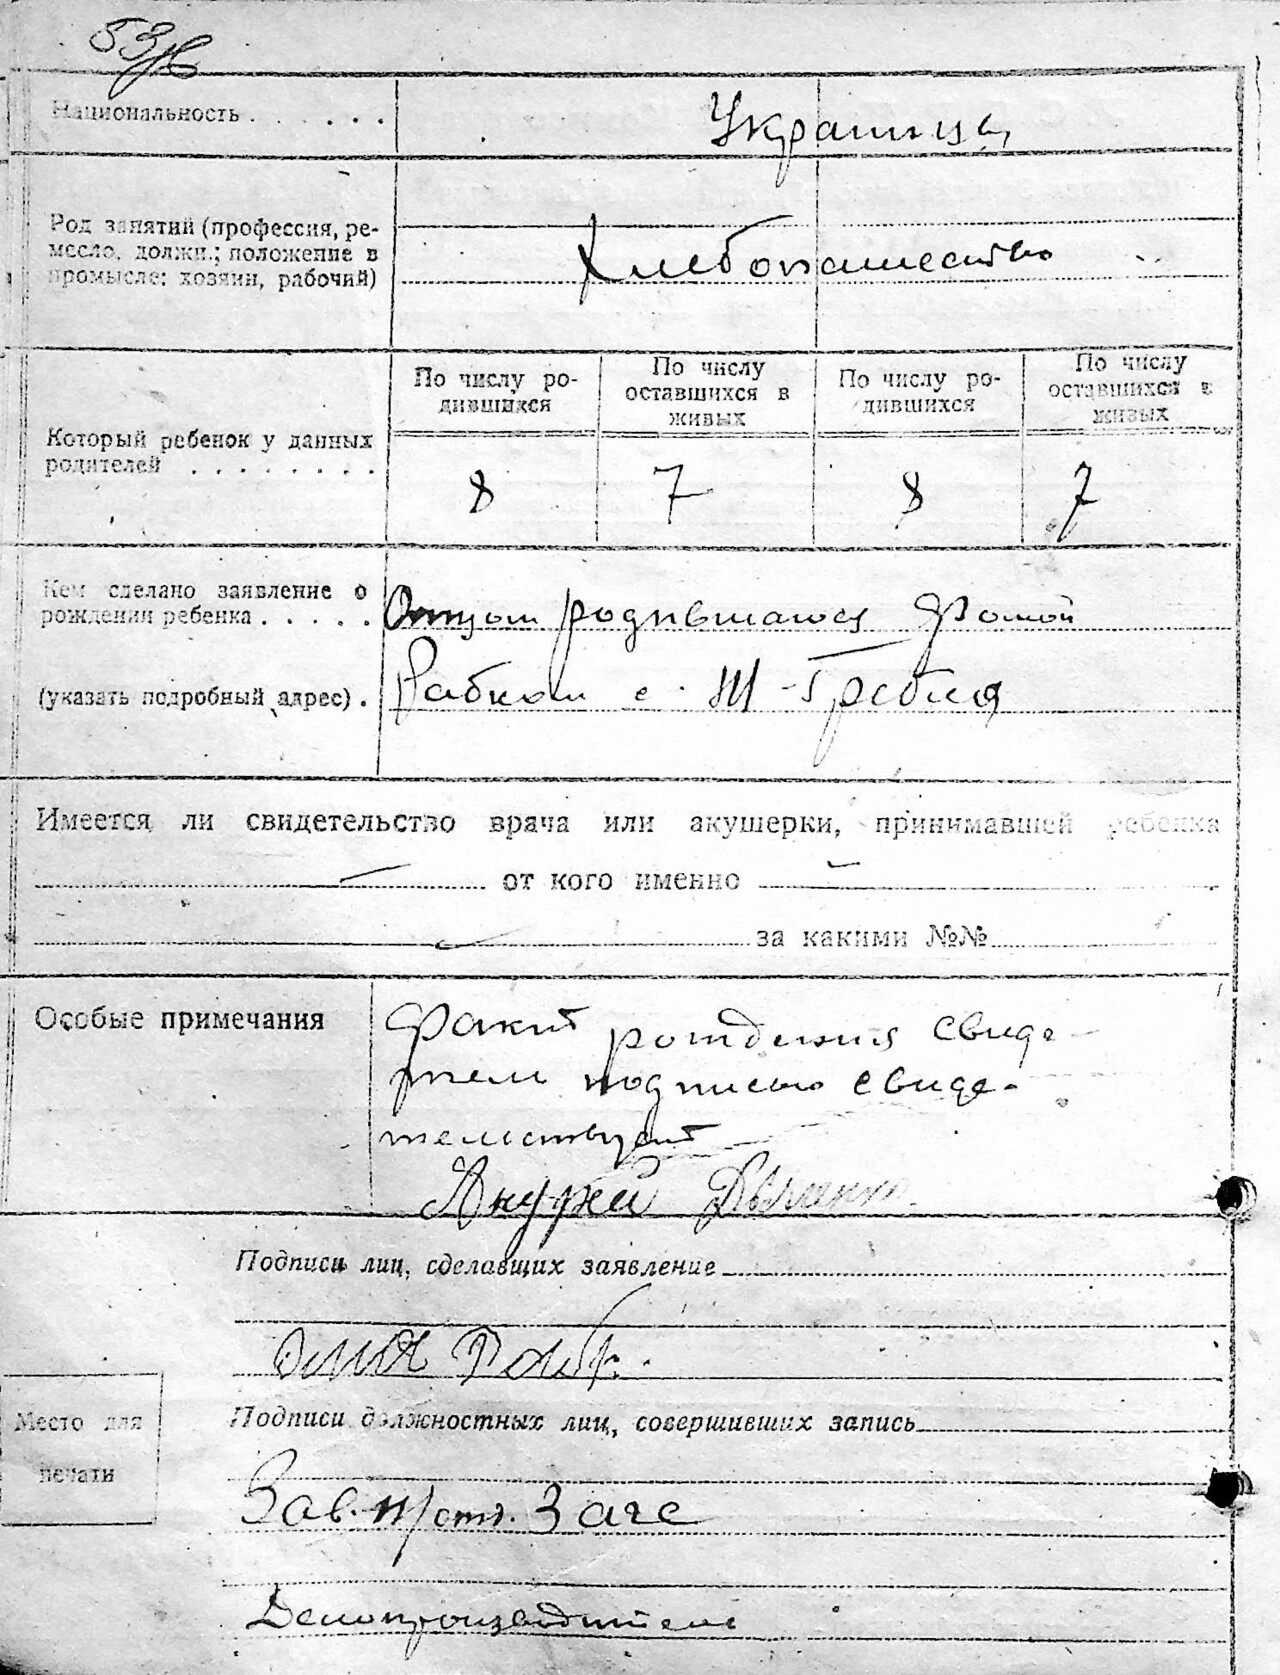 53
Национальность . . . . . .
Украинцы
Род занятий (профессия, ре-
месло, должн.; положение в
промысле: хозяин, рабочий)
Хлебопашество
По числу ро-
дившихся
По числу
оставшихся в
живых
По числу ро-
дившихся
По числу
оставшихся в
живых
Который ребенок у данных
родителей . . . . . . . .
8 7 8 7
Кем сделано заявление о
рождении ребенка . . . . .
Отцом родившагося Фомой
(указать подробный адрес) .
Рабком с. Ш-Гребля
Имеется ли свидетельство врача или акушерки, принимавшей ребенка
от кого именно
за какими №№
Особые примечания
Факт рождения свиде-
тель подписью свиде-
тельствует
Андрей
Подписи лиц, сделавших заявление
Подписи должностных лиц, совершивших запись
Место для
печати
Зав. п/отд. Загс
Делопроизводитель